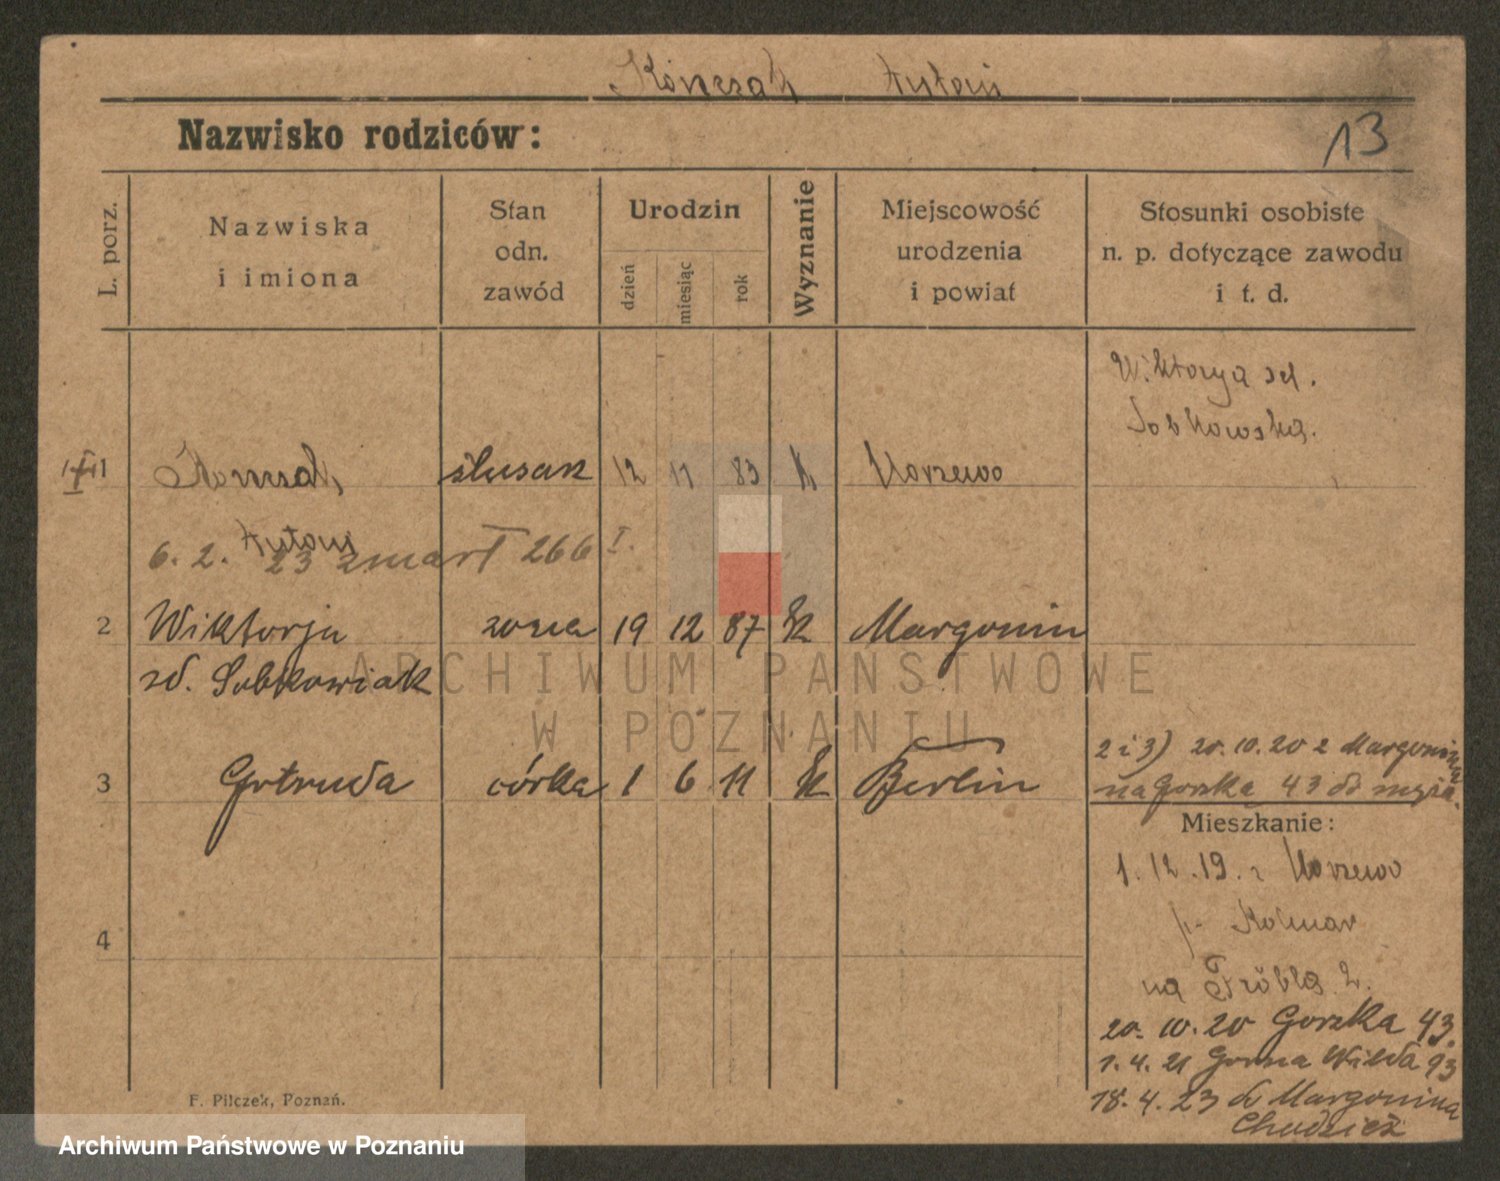 Konczak Antoni
13
Nazwisko rodziców:
L. porz.
Nazwiska
i imiona
Stan
odn.
zawód
Urodzin
dzień
miesiąc
rok
Wyznanie
Miejscowość
urodzenia
i powiat
Stosunki osobiste
n. p. dotyczące zawodu
i t. d.
Wiktorya
1 ślusarz 12 11 83 K
Antoni
6. 2. 23 zmarł 266 I.
2 Wiktorja żona 19 12 87 K Margonin
zd. Sobkowiak
3 Gertruda córka 1 6 11 K Berlin
2 i 3) 20.10.20 z Margonina
na Gorzka 43 do męża.
Mieszkanie:
1. 12. 19. z
p. Kolmar
na Fröbla 2.
4
20. 10. 20 Gorzka 43.
1. 4. 21 Gorna Wilda 93
18. 4. 23 do Margonina
Chodzież
F. Pilczek, Poznań.
ARCHIWUM PAŃSTWOWE
W POZNANIU
Archiwum Państwowe w Poznaniu